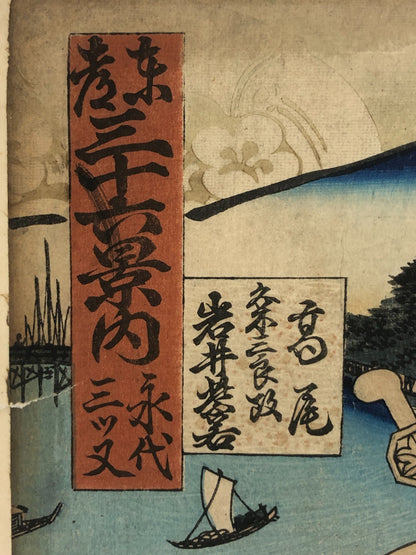 東都
三十六景内
永代
三ツ又
高尾
粂三郎改
岩井紫若